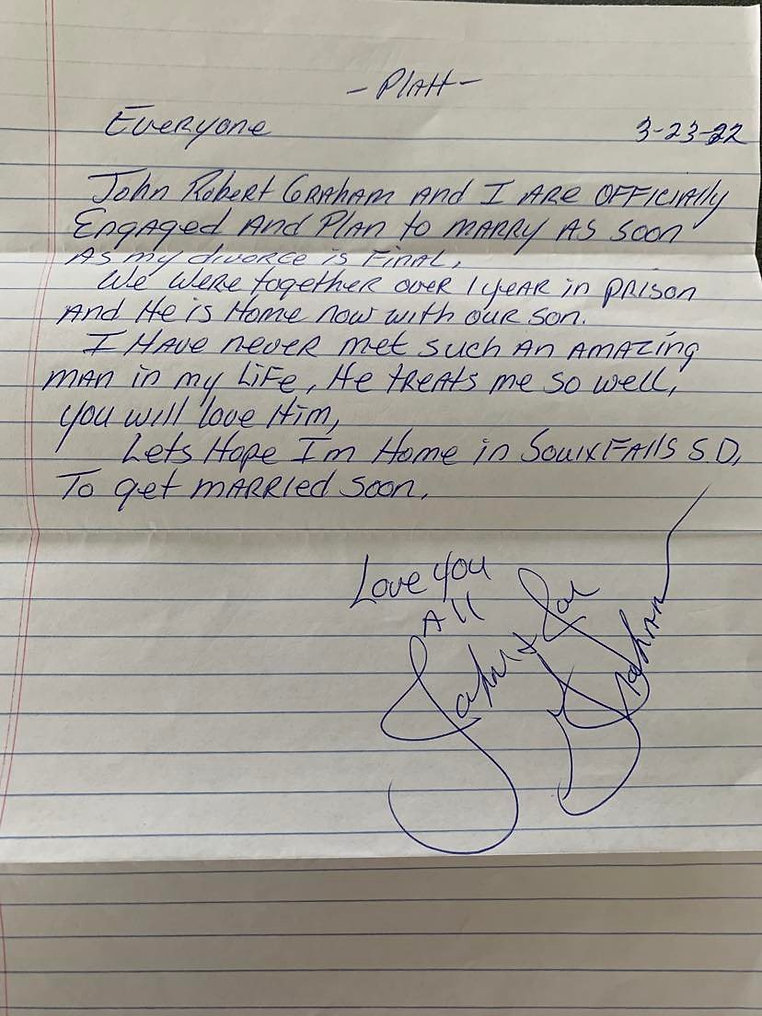 - PlAtt -
Everyone 3-23-22
John Robert GRAHAM AND I ARE OFFICIAlly
ENGAGED AND PlAN to MARRY AS SOON
AS my divorce is FiNAl,
We were together over 1 yEAR in prison
AND He is Home now with our son.
I HAVE never met such AN AMAZing
MAN in my LiFe, He treAts me so well,
you will love Him,
Lets Hope I'm Home in SouixFAlls S.D,
To get MARRied soon,
Love you
All
John + Joe
Graham